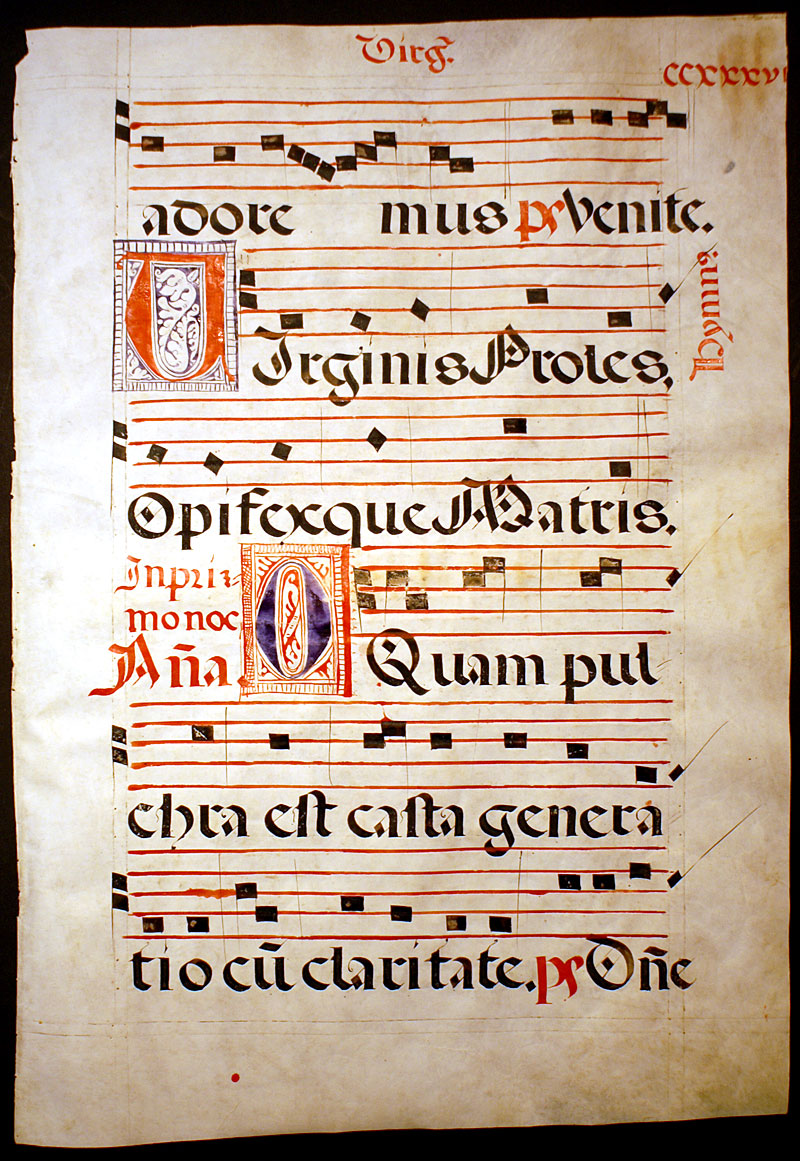 Virg̃.
CCXXXVI
adore mus ps Venite.
Hymnꝰ.
VIrginis Proles,
Opifexque Matris.
In pri⸗
mo noc
Aña
O Quam pul
chra est casta genera
tio cũ claritate. ps Dñe